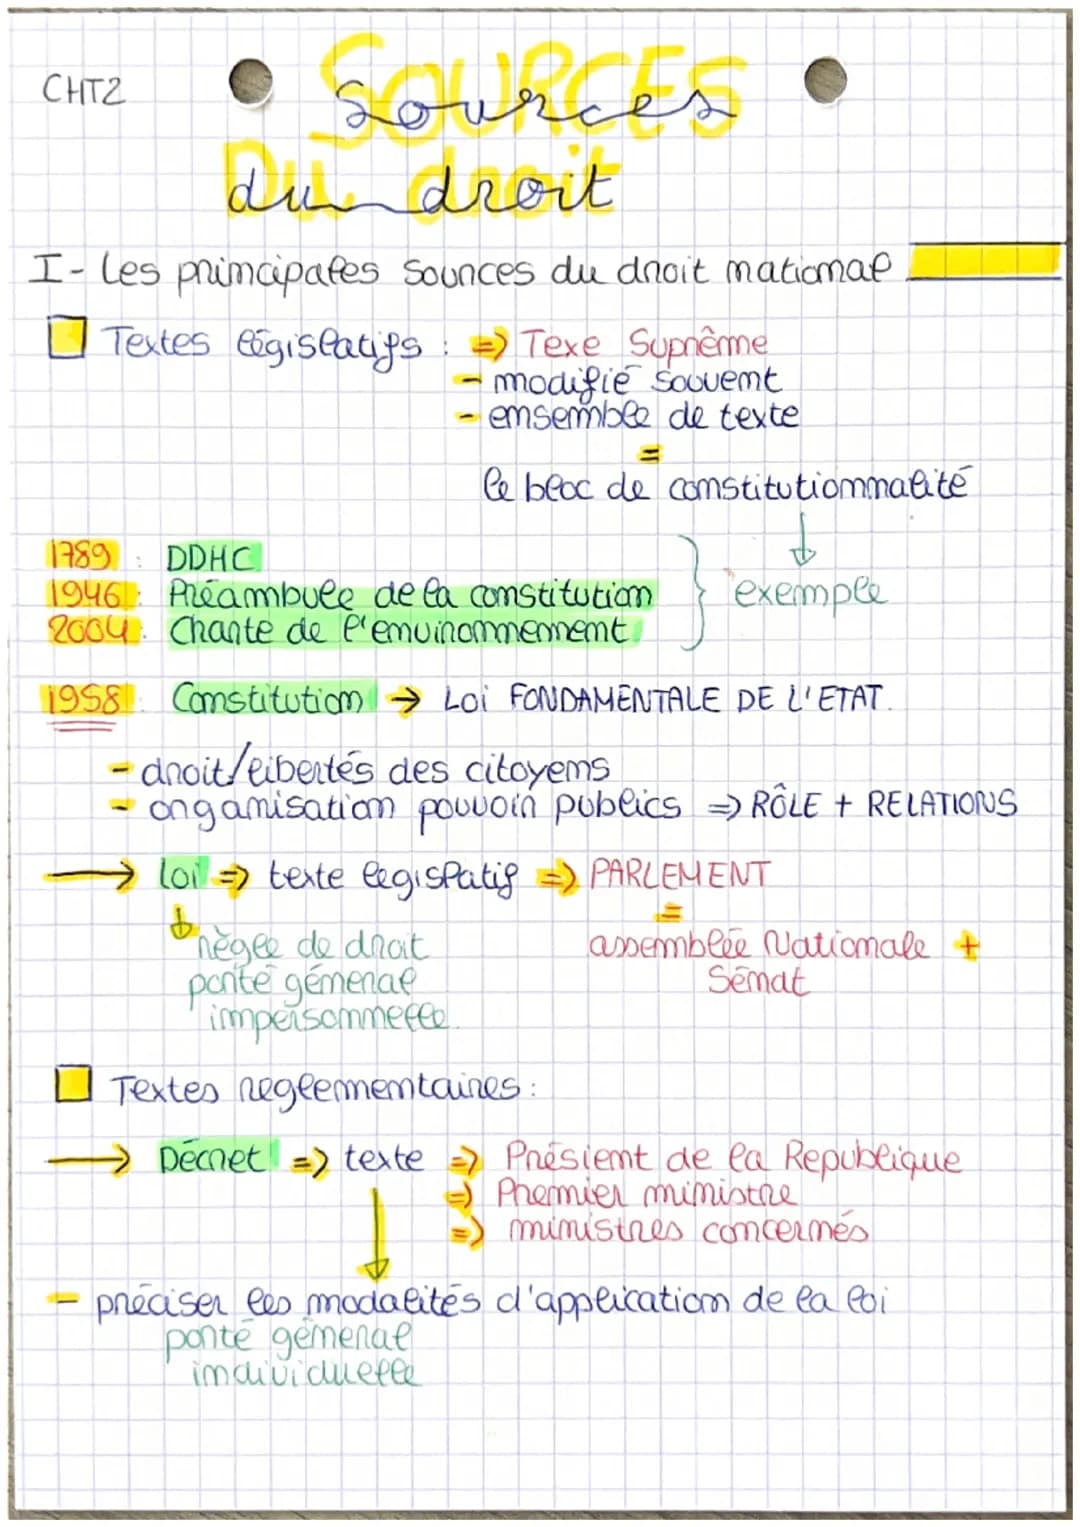 CHT2
SOURCES
Sources
Du droit
du droit
I- Les principales sources du droit national
Textes législatifs : => Texe Suprême
- modifié souvent
- ensemble de texte
=
le bloc de constitutionnalité
1789 : DDHC
1946 : Préambule de la constitution
exemple
2004 : Charte de l'environnement
1958 : Constitution → Loi FONDAMENTALE DE L'ETAT.
- droit/libertés des citoyens
- organisation pouvoir publics => RÔLE + RELATIONS
→ loi => texte legislatif => PARLEMENT
=
règle de droit
porté géneral
impersonnelle
assemblée Nationale +
Sénat
Textes reglementaires :
→ Décret => texte => Présient de la Republique
=> Premier ministre
=> ministres concernés
- préciser les modalités d'application de la loi
porté géneral
individuelle